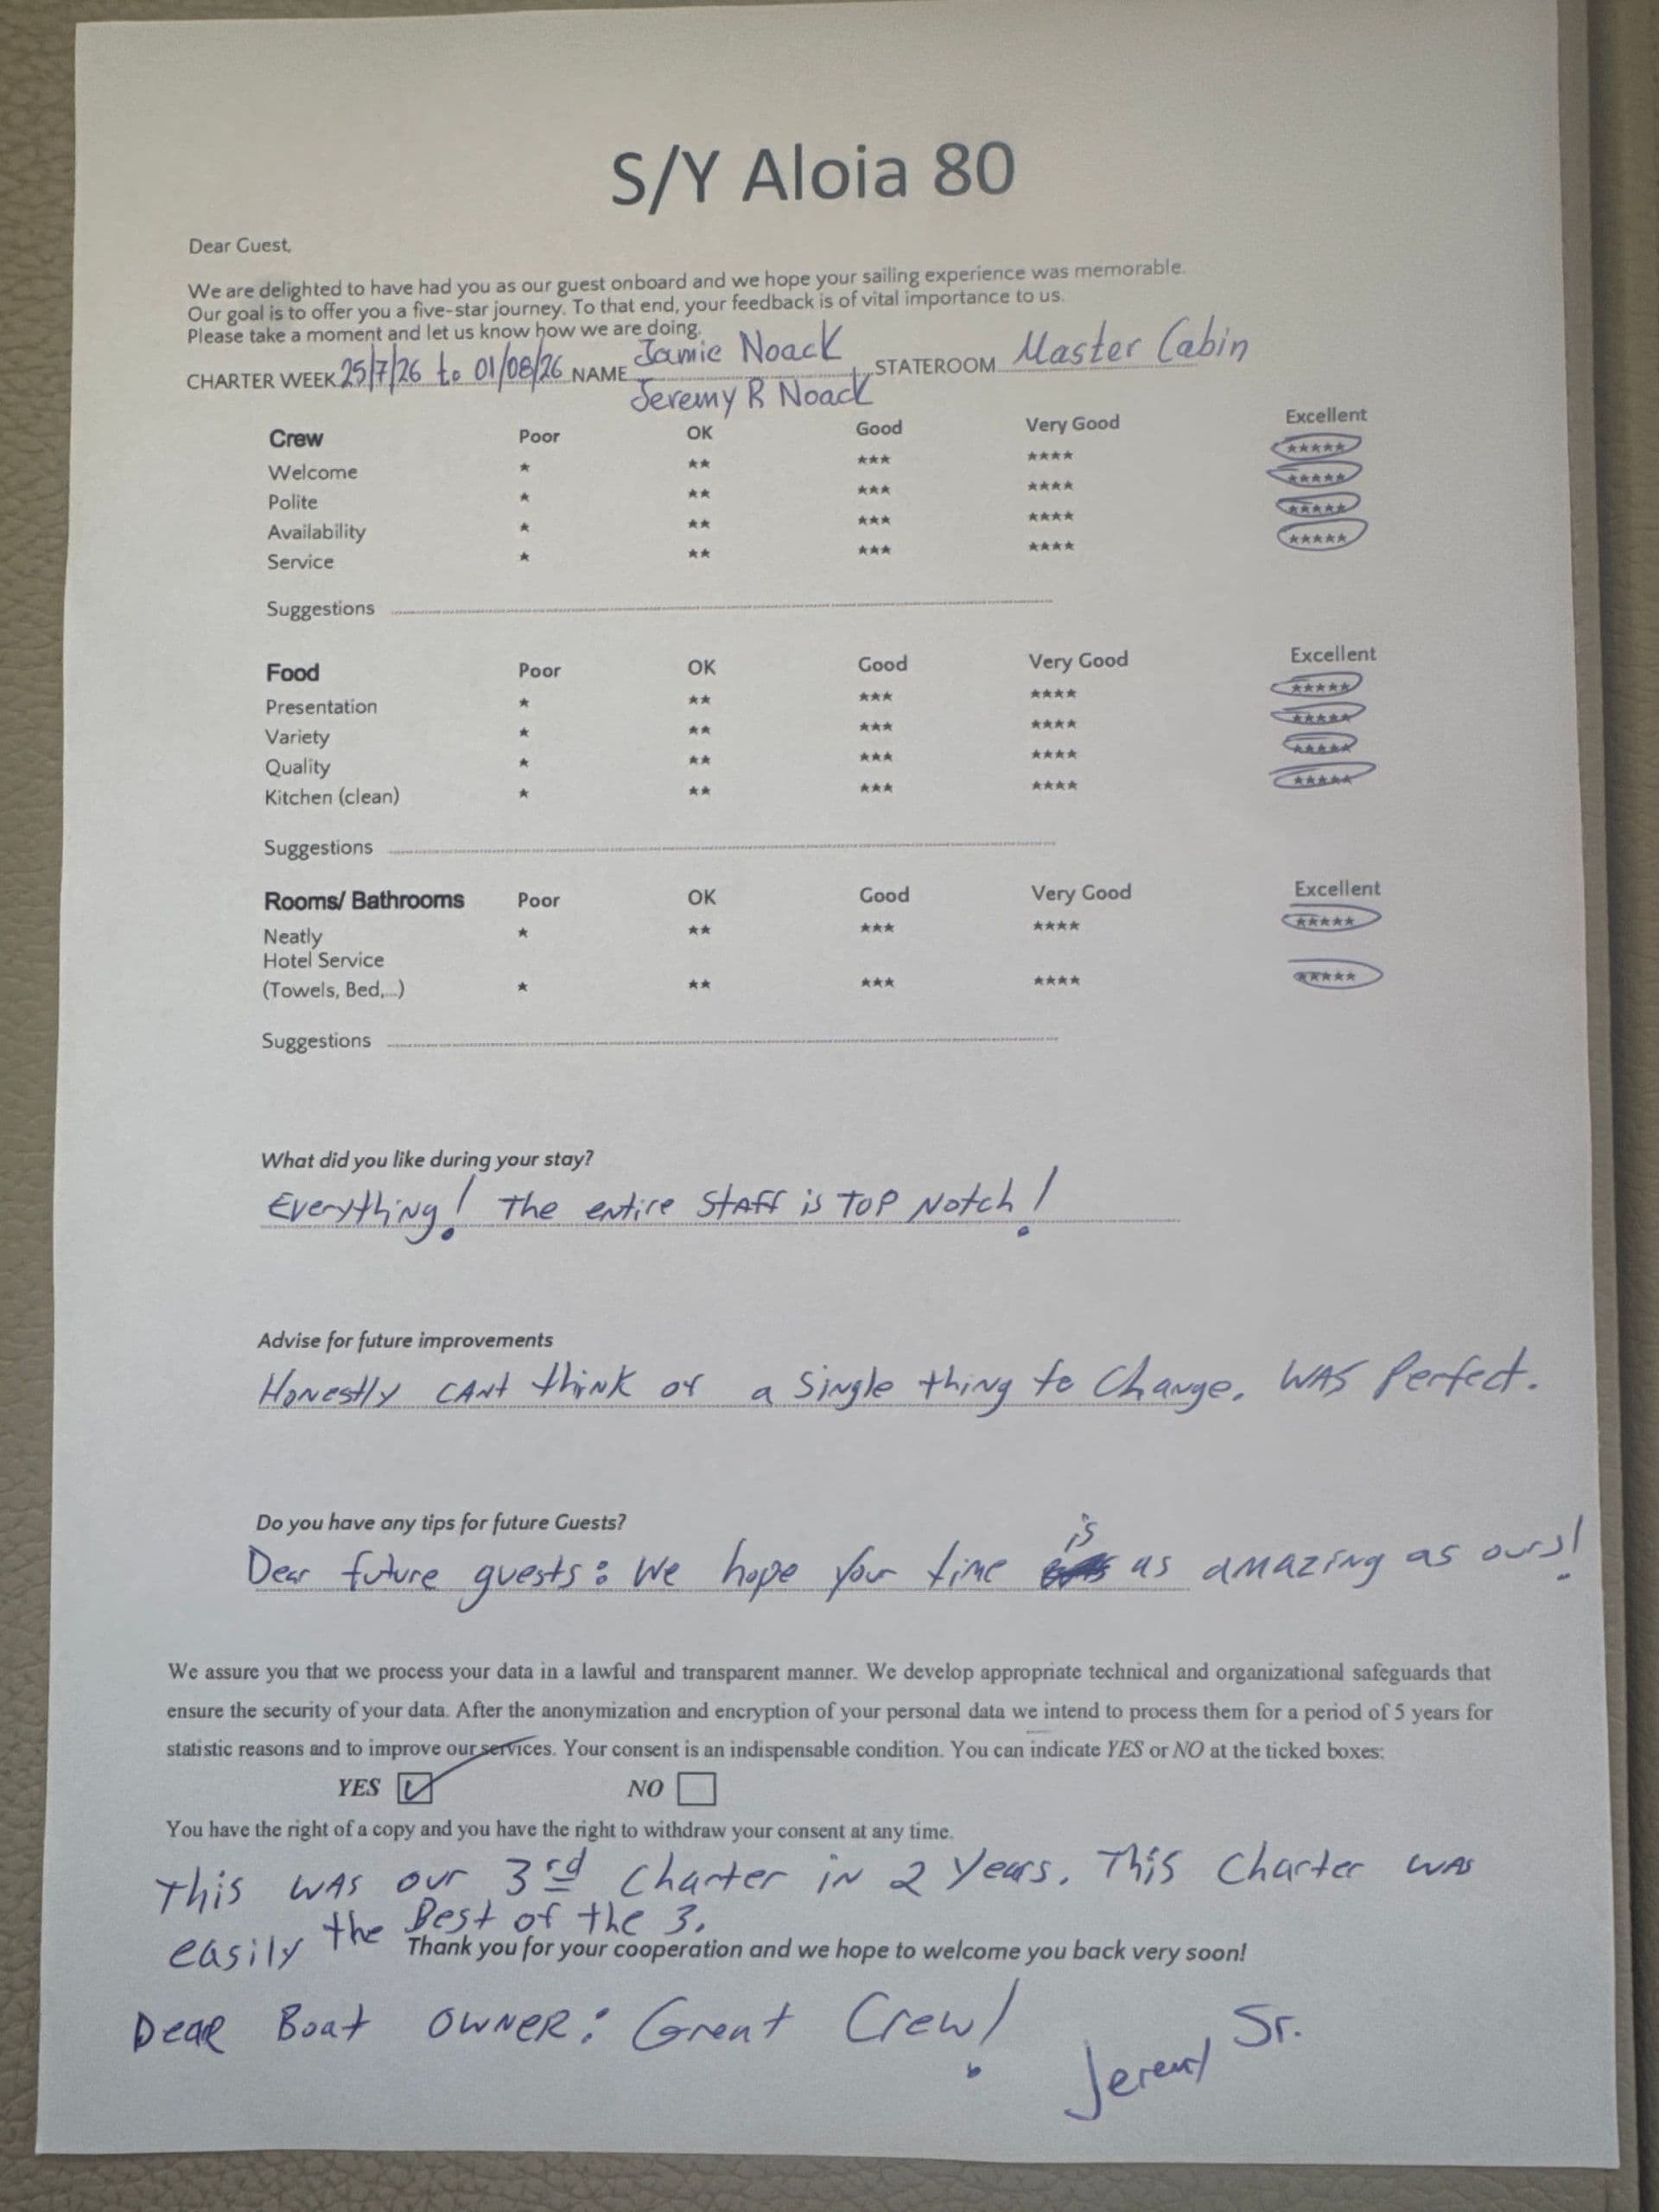 S/Y Aloia 80
Dear Guest,
We are delighted to have had you as our guest onboard and we hope your sailing experience was memorable.
Our goal is to offer you a five-star journey. To that end, your feedback is of vital importance to us.
Please take a moment and let us know how we are doing.
CHARTER WEEK 25/7/26 to 01/08/26 NAME Jamie Noack STATEROOM Master Cabin
Jeremy R Noack
Crew Poor OK Good Very Good Excellent
Welcome * ** *** **** *****
Polite * ** *** **** *****
Availability * ** *** **** *****
Service * ** *** **** *****
Suggestions
Food Poor OK Good Very Good Excellent
Presentation * ** *** **** *****
Variety * ** *** **** *****
Quality * ** *** **** *****
Kitchen (clean) * ** *** **** *****
Suggestions
Rooms/ Bathrooms Poor OK Good Very Good Excellent
Neatly * ** *** **** *****
Hotel Service
(Towels, Bed,...) * ** *** **** *****
Suggestions
What did you like during your stay?
Everything! The entire Staff is TOP Notch!
Advise for future improvements
Honestly CANt think of a Single thing to Change. WAS Perfect.
Do you have any tips for future Guests?
Dear future guests: We hope your time is as amazing as ours!
We assure you that we process your data in a lawful and transparent manner. We develop appropriate technical and organizational safeguards that
ensure the security of your data. After the anonymization and encryption of your personal data we intend to process them for a period of 5 years for
statistic reasons and to improve our services. Your consent is an indispensable condition. You can indicate YES or NO at the ticked boxes:
YES NO
You have the right of a copy and you have the right to withdraw your consent at any time.
This WAS our 3rd Charter in 2 Years. This Charter WAS
easily the Best of the 3.
Thank you for your cooperation and we hope to welcome you back very soon!
Dear Boat OWNER: Great Crew!
Jeremy, Sr.